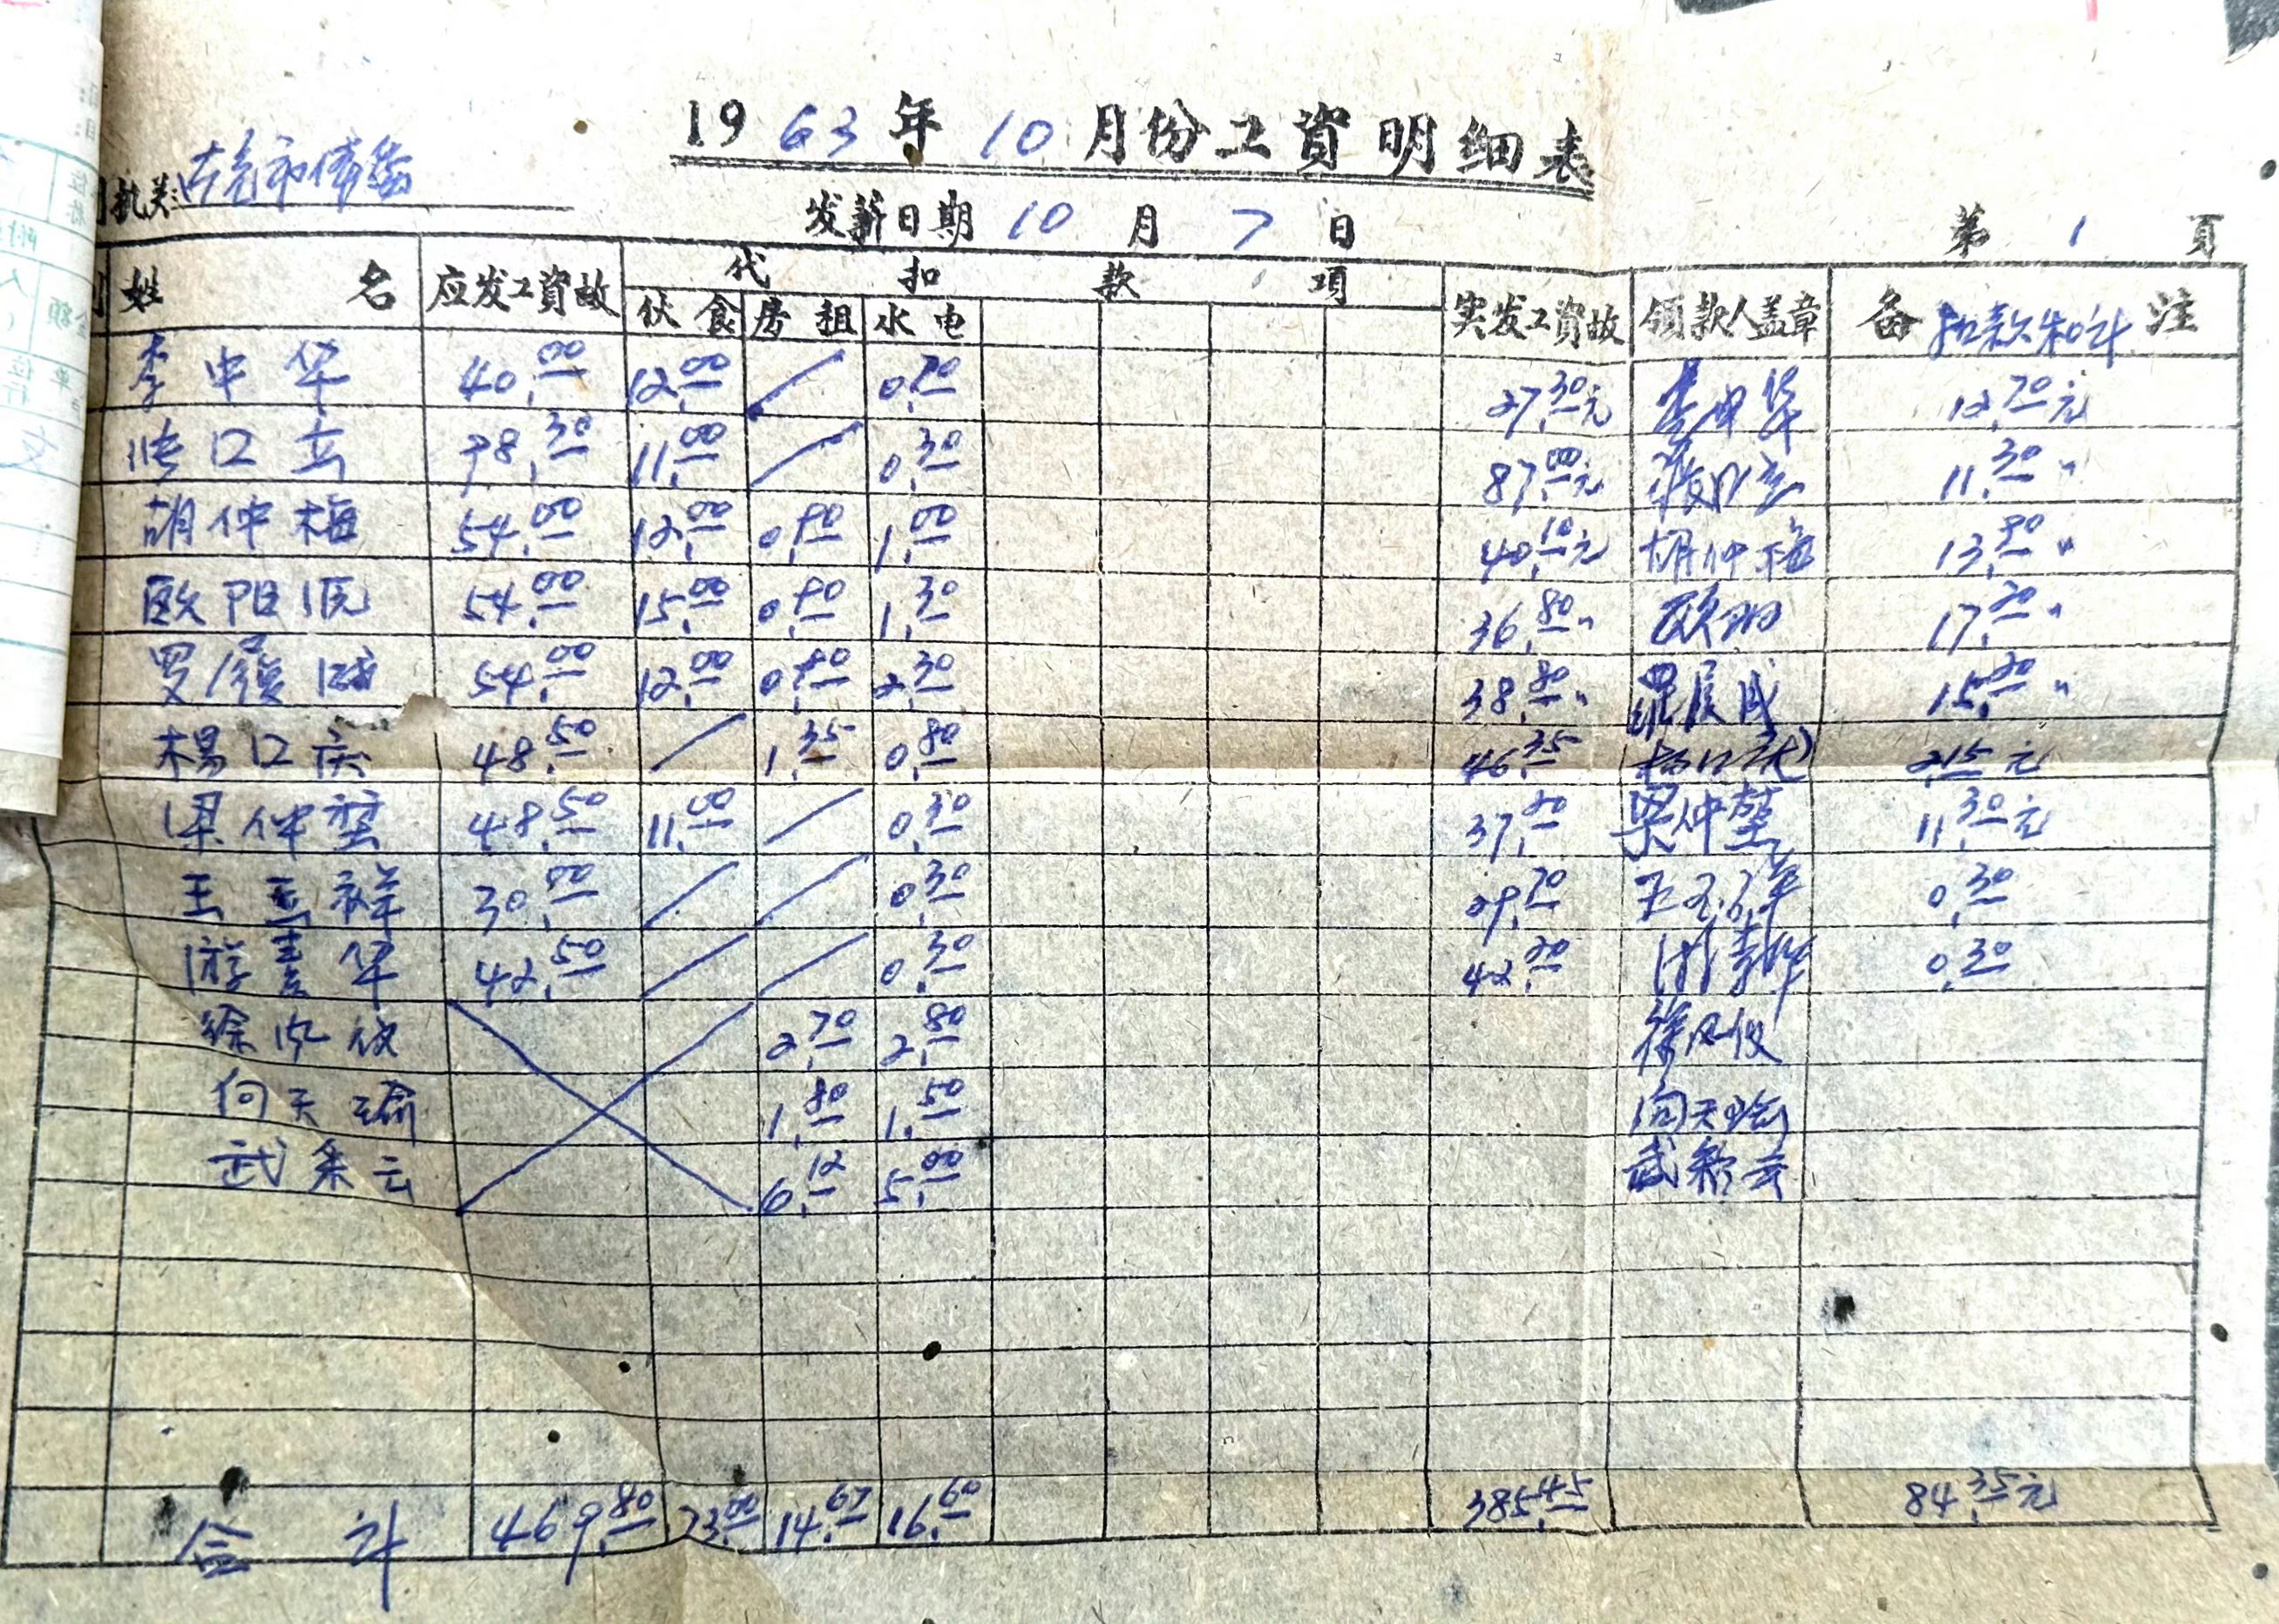 1963年10月份工資明细表
机关:南充市体委
发薪日期 10 月 7 日 第 1 頁
姓名 应发工資故 代扣款項 实发工资故 领款人盖章 备注 扣款和计
伙食 房租 水电
李中华 40.00 12.00 / 0.70 27.30元 李中华 12.70元
98.30 11.00 / 0.30 87.00元 11.30〃
胡仲梅 54.00 12.00 0.90 1.00 40.10元 胡仲梅 13.90〃
欧阳 54.00 15.00 0.90 1.30 36.80〃 欧阳 17.20〃
罗 54.00 12.00 0.90 2.30 38.80〃 15.20〃
楊口庆 48.50 / 1.35 0.80 46.35 2.15元
梁仲莹 48.50 11.00 / 0.30 37.20 梁仲莹 11.30元
王玉祥 30.00 / / 0.30 29.70 王玉祥 0.30
游素华 42.50 / / 0.30 42.20 游素华 0.30
徐凤仪 2.70 2.80 徐凤仪
向天瑜 1.80 1.50 向天瑜
武条云 6.12 5.00 武彩云
合计 469.80 73.00 14.67 16.60 385.45 84.35元